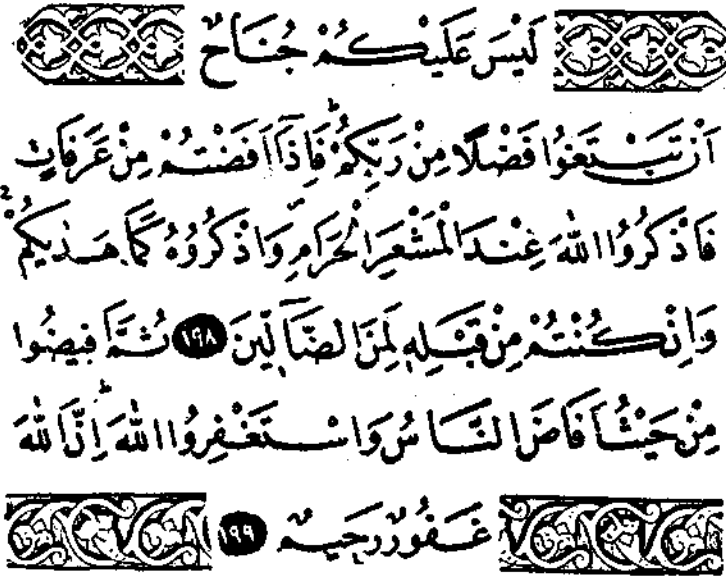 لَيْسَ عَلَيْكُمْ جُنَاحٌ
اَنْ تَبْتَغُوا فَضْلًا مِنْ رَبِّكُمْ ۜ فَاِذَٓا اَفَضْتُمْ مِنْ عَرَفَاتٍ
فَاذْكُرُوا اللّٰهَ عِنْدَ الْمَشْعَرِ الْحَرَامِۖ وَاذْكُرُوهُ كَمَا هَدٰيكُمْۚ
وَاِنْ كُنْتُمْ مِنْ قَبْلِهٖ لَمِنَ الضَّٓالّٖينَ ﴿١٩٨﴾ ثُمَّ اَفٖيضُوا
مِنْ حَيْثُ اَفَاضَ النَّاسُ وَاسْتَغْفِرُوا اللّٰهَۜ اِنَّ اللّٰهَ
غَفُورٌ رَحٖيمٌ ﴿١٩٩﴾